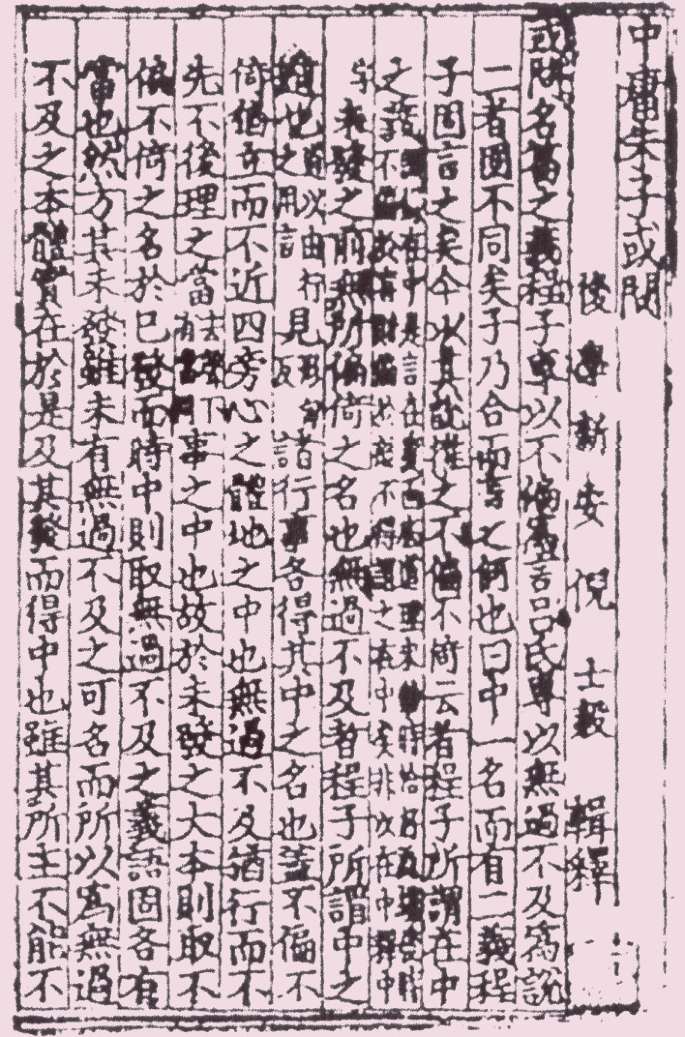 中庸朱子或問
後學新安倪士毅輯釋
或問名篇之義程子專以不偏爲言呂氏專以無過不及爲說
二者固不同矣子乃合而言之何也曰中一名而有二義程
子固言之矣今以其說推之不偏不倚云者程子所謂在中
之義在中是言在裏面底道理未動時恰好
不得謂之在中矣非以在中釋中
字未發之前無所偏倚之名也無過不及者程子所謂中之
道也道以由行之用言見形甸反諸行事各得其中之名也蓋不偏不
倚猶立而不近四旁心之體地之中也無過不及猶行而不
先不後理之當去聲下事之中也故於未發之大本則取不
偏不倚之名於已發而時中則取無過不及之義語固各有
當也然方其未發雖未有無過不及之可名而所以爲無過
不及之本體實在於是及其發而得中也雖其所主不能不